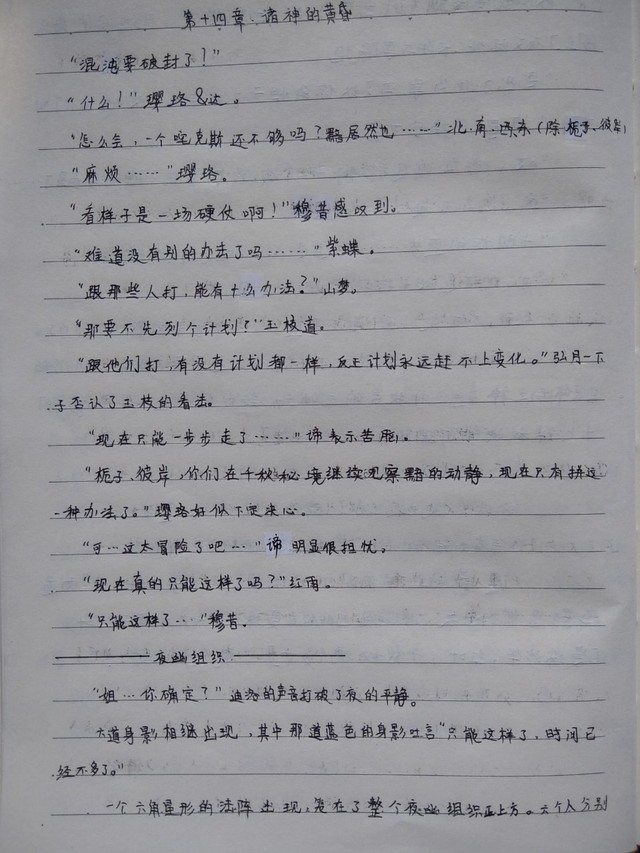 第十四章:诸神的黄昏
“混沌要破封了!”
“什么!”璎珞&达。
“怎么会,一个哎克斯还不够吗?黯居然也……”北.南.西.东(除栀子、彼岸)
“麻烦……”璎珞。
“看样子是一场硬仗啊!”穆昔感叹到。
“难道没有别的办法了吗………”紫蝶。
“跟那些人打,能有什么办法?”山梦。
“那要不先列个计划?”玉枝道。
“跟他们打,有没有计划都一样,反正计划永远赶不上变化。”弘月一下
子否认了玉枝的看法。
“现在只能一步步走了……”谛表示苦脑。
“栀子,彼岸,你们在千秋秘境继续观察黯的动静,现在只有拼这
一种办法了。”璎珞好似下定决心。
“可…这太冒险了吧…”谛明显很担忧。
“现在真的只能这样了吗?”红雨。
“只能这样了…”穆昔.
夜幽组织
“姐…你确定?”迪洛的声音打破了夜的平静。
六道身影相继出现,其中那道蓝色的身影吐言“只能这样了,时间已
经不多了。”
一个六角星形的法阵出现,定在了整个夜幽组织正上方。六个人分别